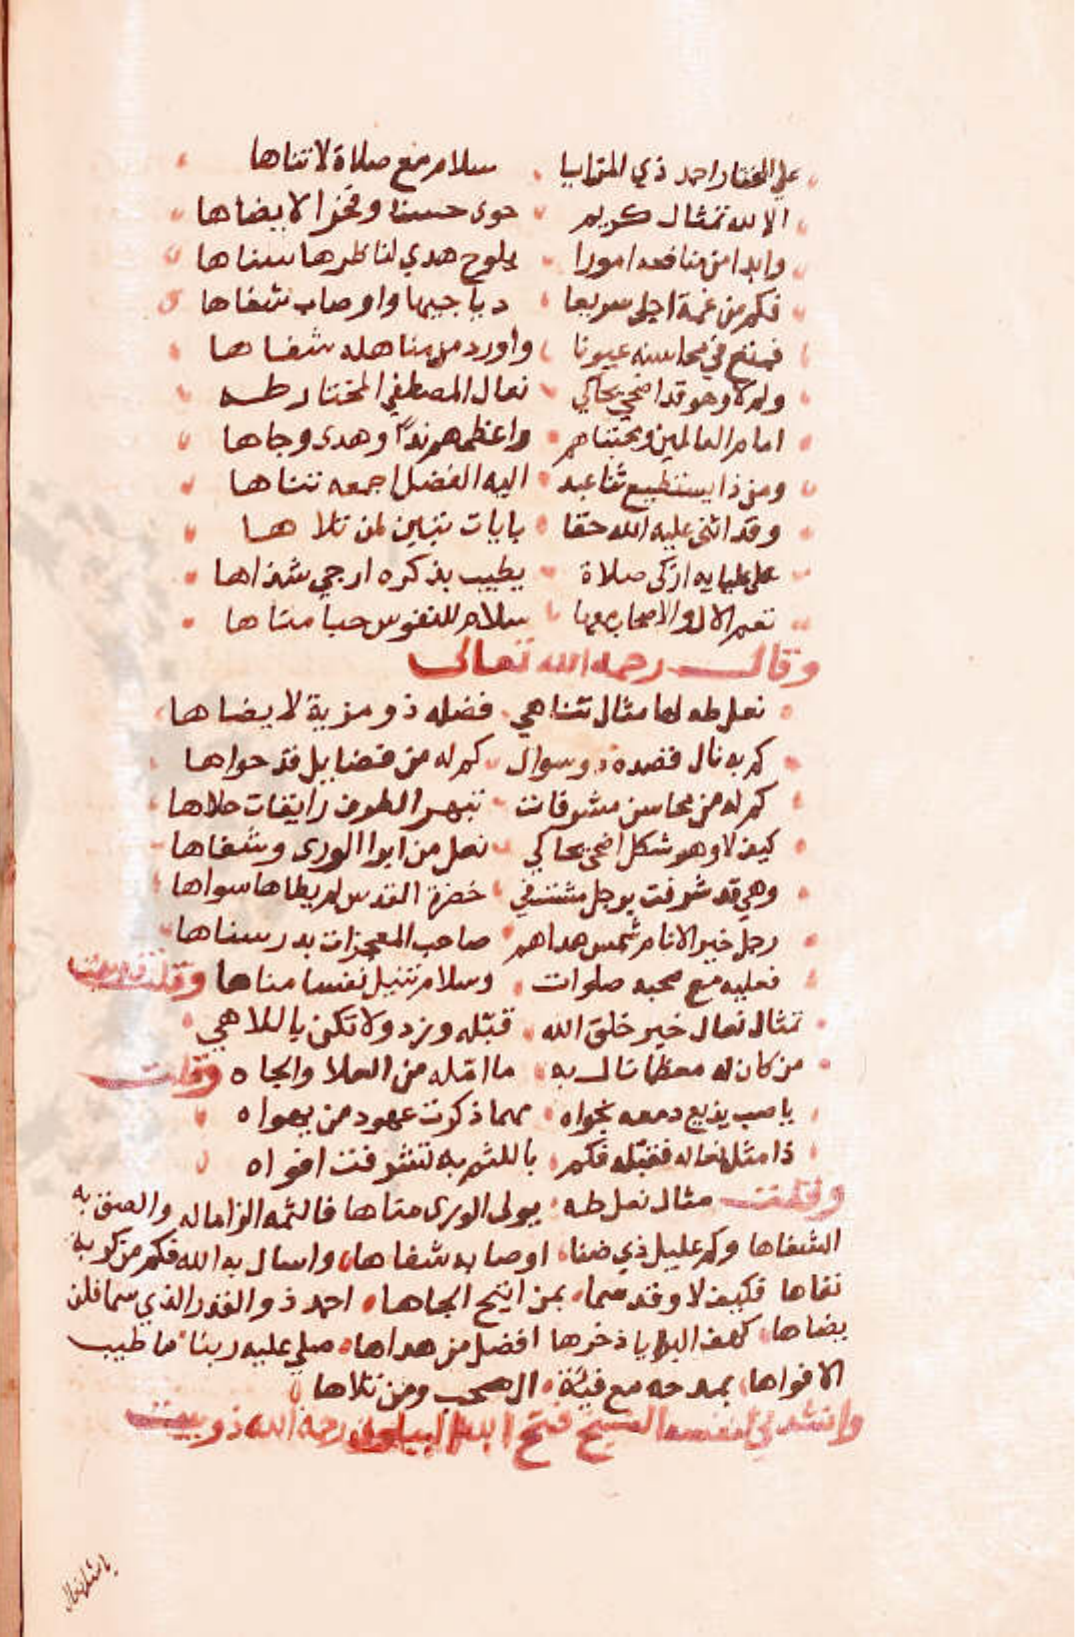 على المختار احمد ذي المزايا سلام مع صلاة لا تناها
الا لله تمثال كريم حوى حسنا وفخرا لا يضاها
وابدا من منافعه امورا يلوح هدي لناظرها سناها
فكم من غمة اجلى سريعا دياجيها واوصاب شفاها
فمتع في محاسنه عيونا واورد من مناهله شفاها
ولم لا وهو قد اضحى يحاكي نعال المصطفي المختار طه
امام العالمين ومجتباهم واعظمهم ندًا وهدى وجاها
ومن ذا يستطيع ثنا عبد اليه الفضل اجمعه تناها
وقد اثنى عليه الله حقا بايات تبين لمن تلاها
على عليايه ازكى صلاة يطيب بذكره ارجي شذاها
تعم الال والاصحاب سلام للنفوس حبا مناها
وقال رحمه الله تعالى
نعل طه لها مثال تناهي فضله ذو مزية لا يضاها
كم به نال قصده ذو سوال كم له من فضايل قد حواها
كم له من محاسن مشرقات تبهر الطرف رايقات حلاها
كيف لا وهو شكل اضحى يحاكي نعل من ابرا الورى وشفاها
وهي قد شرفت برجل مشت في حضرة القدس لم يطاها سواها
رجل خير الانام شمس هداهم صاحب المعجزات بدر سناها
فعليه مع صحبه صلوات وسلام تنيل نفسا مناها وقلت
تمثال نعال خير خلق الله قبّله وزد ولا تكن باللاهي
من كان له معظما نال به ما امّله من العلا والجاه وقلت
يا صب يذيع دمعه نجواه مهما ذكرت عهود من يهواه
ذا مثل نعاله فقبّله فكم باللثم به تشرفت افواه
وقلت مثال نعل طه يولى الورى مناها فالثمه الزاما له والصق به
الشفاها وكم عليل ذي ضنا اوصابه شفاها واسال به الله فكم من كربه
نفاها فكيف لا وقد سما بمن اتيح الجاها احمد ذو القدر الذي سما فلن
يضاها كهف البرايا ذخرها افضل من هداها صلي عليه ربنا ما طيب
الافواها بمدحه مع فيئة الصحب ومن تلاها
وانشدني لنفسه الشيخ فتح الله البيلوني رحمه الله ذو بيت
يا مثل نعال